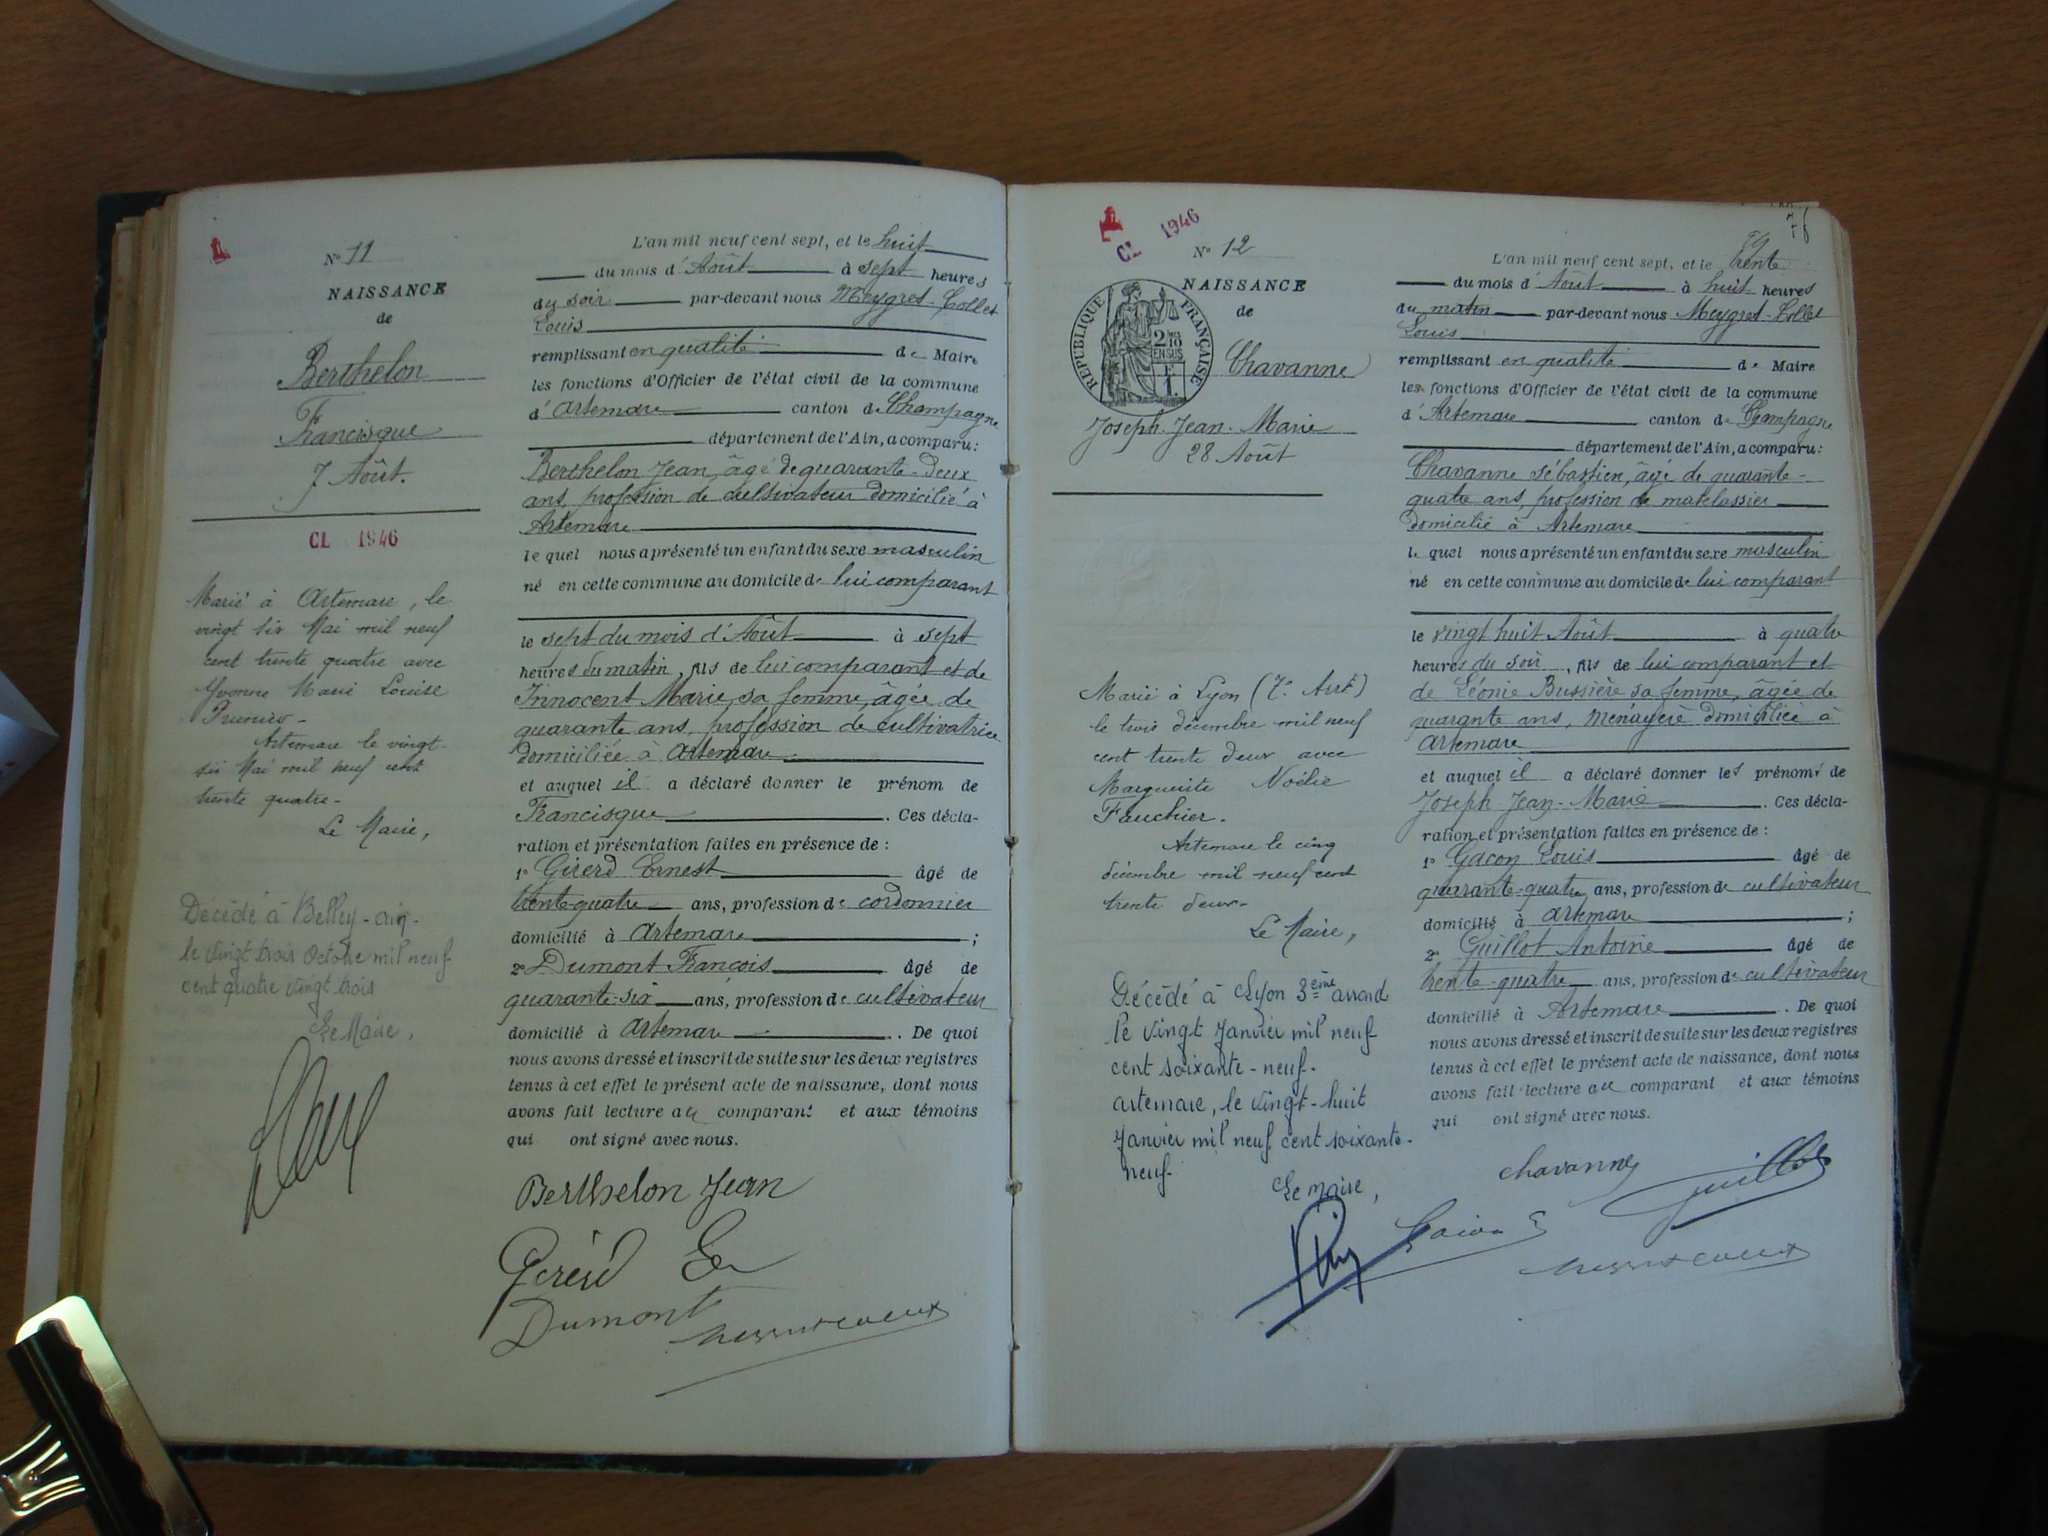 Nº 11
NAISSANCE
de
Berthelon
Francisque
7 Août.
CL 1946
Marié à Artemare, le
vingt six Mai mil neuf
cent trente quatre avec
Yvonne Marie Louise
Artemare le vingt
six Mai mil neuf cent
trente quatre.
Le Maire,
Décédé à Belley-ain-
le vingt trois Octobre mil neuf
cent quatre vingt trois
Le Maire,
L'an mil neuf cent sept, et le huit
du mois d'Août à sept heures
du soir par-devant nous Meygret-Collet
Louis
remplissant en qualité de Maire
les fonctions d'Officier de l'état civil de la commune
d'Artemare canton de Champagne
département de l'Ain, a comparu:
Berthelon Jean, âgé de quarante-deux
ans, profession de cultivateur domicilié à
Artemare
le quel nous a présenté un enfant du sexe masculin
né en cette commune au domicile de lui comparant
le sept du mois d'Août à sept
heures du matin, fils de lui comparant et de
Innocent Marie, sa femme, âgée de
quarante ans, profession de cultivatrice
domiciliée à Artemare
et auquel il a déclaré donner le prénom de
Francisque. Ces décla-
ration et présentation faites en présence de :
1º Girerd Ernest âgé de
trente-quatre ans, profession de cordonnier
domicilié à Artemare ;
2º Dumont François âgé de
quarante-six ans, profession de cultivateur
domicilié à Artemare. De quoi
nous avons dressé et inscrit de suite sur les deux registres
tenus à cet effet le présent acte de naissance, dont nous
avons fait lecture au comparant et aux témoins
qui ont signé avec nous.
Berthelon Jean
Dumont
CL 1946
Nº 12
NAISSANCE
de
RÉPUBLIQUE FRANÇAISE
Chavanne
Joseph-Jean-Marie
28 Août
Marié à Lyon (7e Arrt)
le trois décembre mil neuf
cent trente deux avec
Marguerite Noélie
Fauchier.
Artemare le cinq
décembre mil neuf cent
trente deux.
Le Maire,
Décédé à Lyon 3ème arrond
le vingt Janvier mil neuf
cent soixante-neuf.
artemare, le vingt-huit
Janvier mil neuf cent soixante-
neuf.
Le Maire,
L'an mil neuf cent sept, et le trente
du mois d'Août à huit heures
du matin par-devant nous Meygret-Collet
Louis
remplissant en qualité de Maire
les fonctions d'Officier de l'état civil de la commune
d'Artemare canton de Champagne
département de l'Ain, a comparu:
Chavanne Sébastien, âgé de quarante-
quatre ans, profession de matelassier
domicilié à Artemare
le quel nous a présenté un enfant du sexe masculin
né en cette commune au domicile de lui comparant
le vingt huit Août à quatre
heures du soir, fils de lui comparant et
de Léonie Bussière sa femme, âgée de
quarante ans, ménagère domiciliée à
Artemare
et auquel il a déclaré donner les prénoms de
Joseph-Jean-Marie. Ces décla-
ration et présentation faites en présence de :
1º Gacon Louis âgé de
quarante-quatre ans, profession de cultivateur
domicilié à Artemare ;
2º Guillot Antoine âgé de
trente-quatre ans, profession de cultivateur
domicilié à Artemare. De quoi
nous avons dressé et inscrit de suite sur les deux registres
tenus à cet effet le présent acte de naissance, dont nous
avons fait lecture au comparant et aux témoins
qui ont signé avec nous.
Chavanne
Guillot